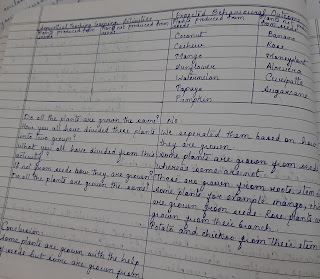 Suggested Teaching Learning Activities
Expected Behavioural Outcome
Plants produced from seeds
Plants not produced from seeds
Plants produced from
Plants not from seeds
Coconut Banana
Cashew Rose
Mango Moneyplant
Sunflower
Watermelon
Papaya Sugarcane
Pumpkin
Do all the plants are grown the same? No
How you all have divided these plants We seperated them based on how
into two groups? they are grown
What you all have divided from this Some plants are grown from seeds
activity? whereas some are not.
If not from seeds how they are grown? These are grown from roots, stem
Do all the plants are grown the same? Some plants for example mango,
are grown from seeds. Rose plants are
grown from their branch.
Potato and from their stem
Conclusion:
Some plants are grown with the help
of seeds but some are grown from